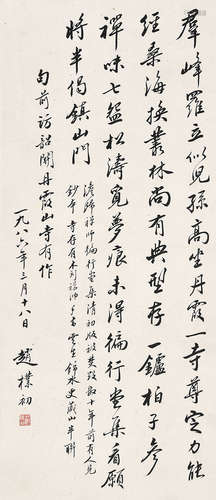 群峰羅立似兒孫高坐丹霞一寺尊定力能
經桑海換叢林尚有典型存一鑪柏子參
禪味七盌松濤覓夢痕未得徧行堂集看願
將半偈鎮山門
澹歸禪師徧行堂集清初版被焚毀
十年前有人見
鈔本
旬前訪韶關丹霞山寺有作
一九八六年三月十八日
趙樸初